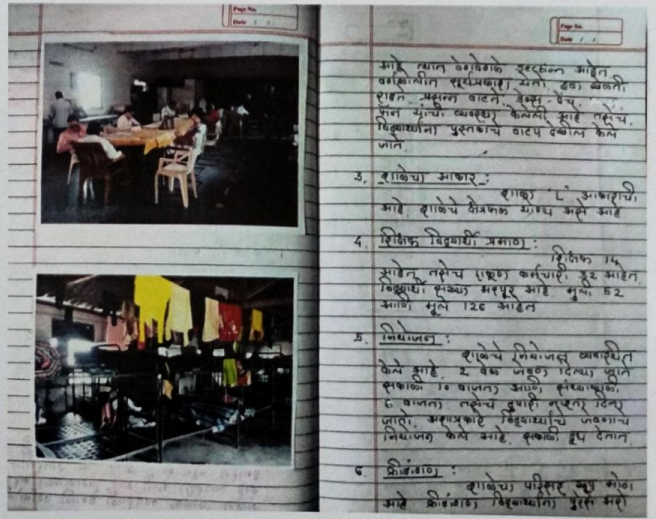 Page No.
Date / /
Page No.
Date / /
आहे त्यात वेगवेगळे आहेत
वर्गखोलीत सूर्यप्रकाश येतो, हवा खेळती
राहते. प्रसन्न वाटते. बेंच,
यांची व्यवस्था केलेली आहे तसेच
विद्यार्थ्यांना पुस्तकाचे वाटप देखील केले
जाते.
3. शाळेचा आकार :
शाळा 'L' आकाराची
आहे. शाळेचे क्षेत्रफळ योग्य असे आहे
4. शिक्षक विद्यार्थी प्रमाण :
शिक्षक 14
आहेत तसेच एकूण कर्मचारी 32 आहेत.
विद्यार्थी संख्या भरपूर आहे. मुली 52
आणि मुले 126 आहेत
5. नियोजन :
शाळेचे नियोजन व्यवस्थित
केले आहे. 2 वेळ जेवण दिल्या जाते
सकाळी 10 वाजता आणि संध्याकाळी
6 वाजता तसेच दुपारी नाश्ता दिला
जातो. अशाप्रकारे विद्यार्थ्यांचे जेवणाचे
नियोजन केले आहे. सकाळी दूध देतात.
6. क्रीडांगण :
शाळेचा परिसर खूप मोठा
आहे क्रीडांगण विद्यार्थ्यांना पुरेसे असे